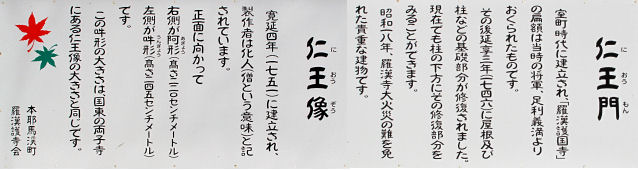 仁王門
に おう もん
室町時代に建立され、「羅漢護国寺」
の扁額は当時の将軍、足利義満より
おくられたものです。
その後延享三年（一七四六）に屋根及び
柱などの基礎部分が修復されました。
現在でも柱の下方にその修復部分を
みることができます。
昭和一八年、羅漢寺大火災の難を免
れた貴重な建物です。
仁王像
に おう ぞう
寛延四年（一七五一）に建立され、
製作者は化人（僧という意味）と記
されています。
正面に向かって
右側が阿形（高さ二四〇センチメートル）
あぎょう
左側が吽形（高さ二四五センチメートル）
うんぎょう
です。
この吽形の大きさは、国東の両子寺
にある仁王像の大きさと同じです。
本耶馬渓町
羅漢護寺会